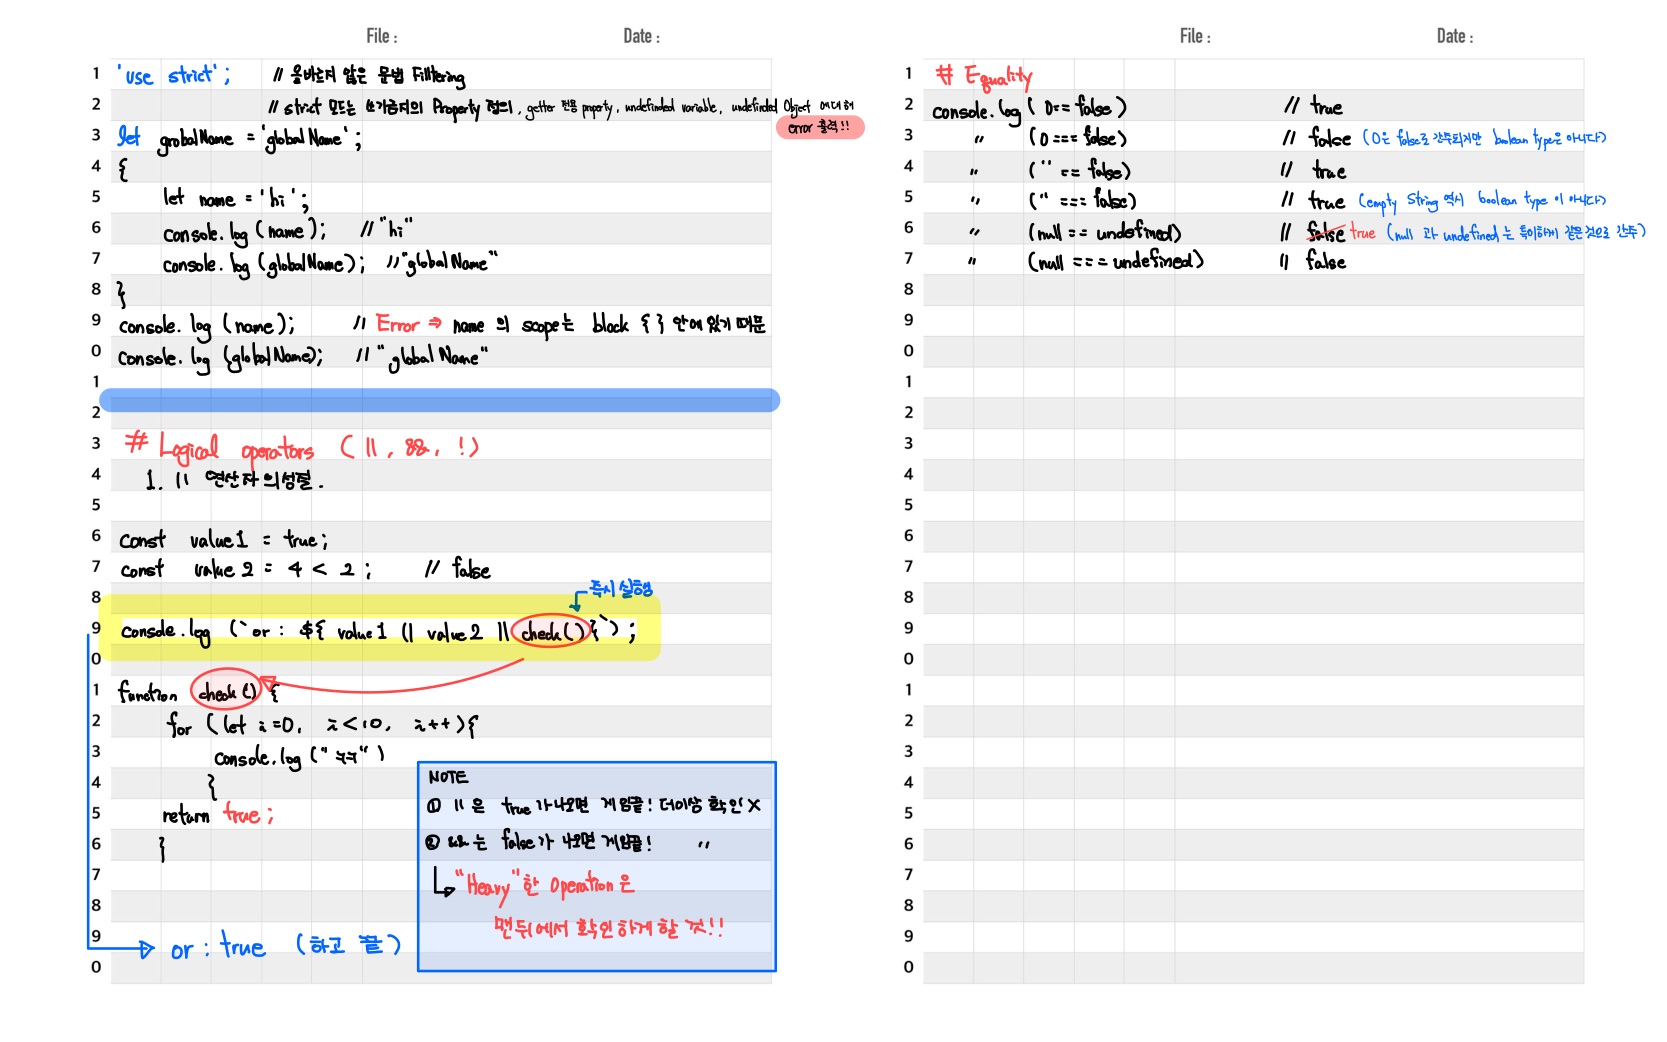 File : Date :
1 'use strict'; // 올바르지 않은 문법 Filltering
2 // strict 모드는 쓰기금지의 Property 정의, getter 전용 property, undefinded variable, undefinded Object 에대해
error 출력!!
3 let grobalName = 'globalName';
4 {
5 let name = 'hi';
6 console.log (name); // "hi"
7 console.log (globalName); // "globalName"
8 }
9 console.log (name); // Error ⇒ name 의 scope는 block { } 안에있기 때문
0 console.log (globalName); // "globalName"
1
2
3 # Logical operators ( ||, &&, ! )
4 1. || 연산자의성질.
5
6 const value1 = true;
7 const value2 = 4 < 2 ; // false
8 즉시 실행
9 console.log (`or : ${ value1 || value2 || check() }`) ;
0
1 function check() {
2 for (let i=0, i<10, i++){
3 console.log ("")
4 }
5 return true;
6 }
7
8
9 or : true (하고 끝)
0
NOTE
① || 은 true가나오면 게임끝! 더이상 확인 X
② && 는 false가 나오면 게임끝! 〃
↳ "Heavy"한 Operation은
맨뒤에서 확인하게 할 것!!
File : Date :
1 # Equality
2 console.log ( 0== false ) // true
3 〃 (0 === false) // false (0은 false로 간주되지만 boolean type은 아니다)
4 〃 ('' == false) // true
5 〃 ('' === false) // true (empty String 역시 boolean type 이 아니다)
6 〃 (null == undefined) // false true (null 과 undefined 는 특이하게 같은것으로 간주)
7 〃 (null === undefined) // false
8
9
0
1
2
3
4
5
6
7
8
9
0
1
2
3
4
5
6
7
8
9
0